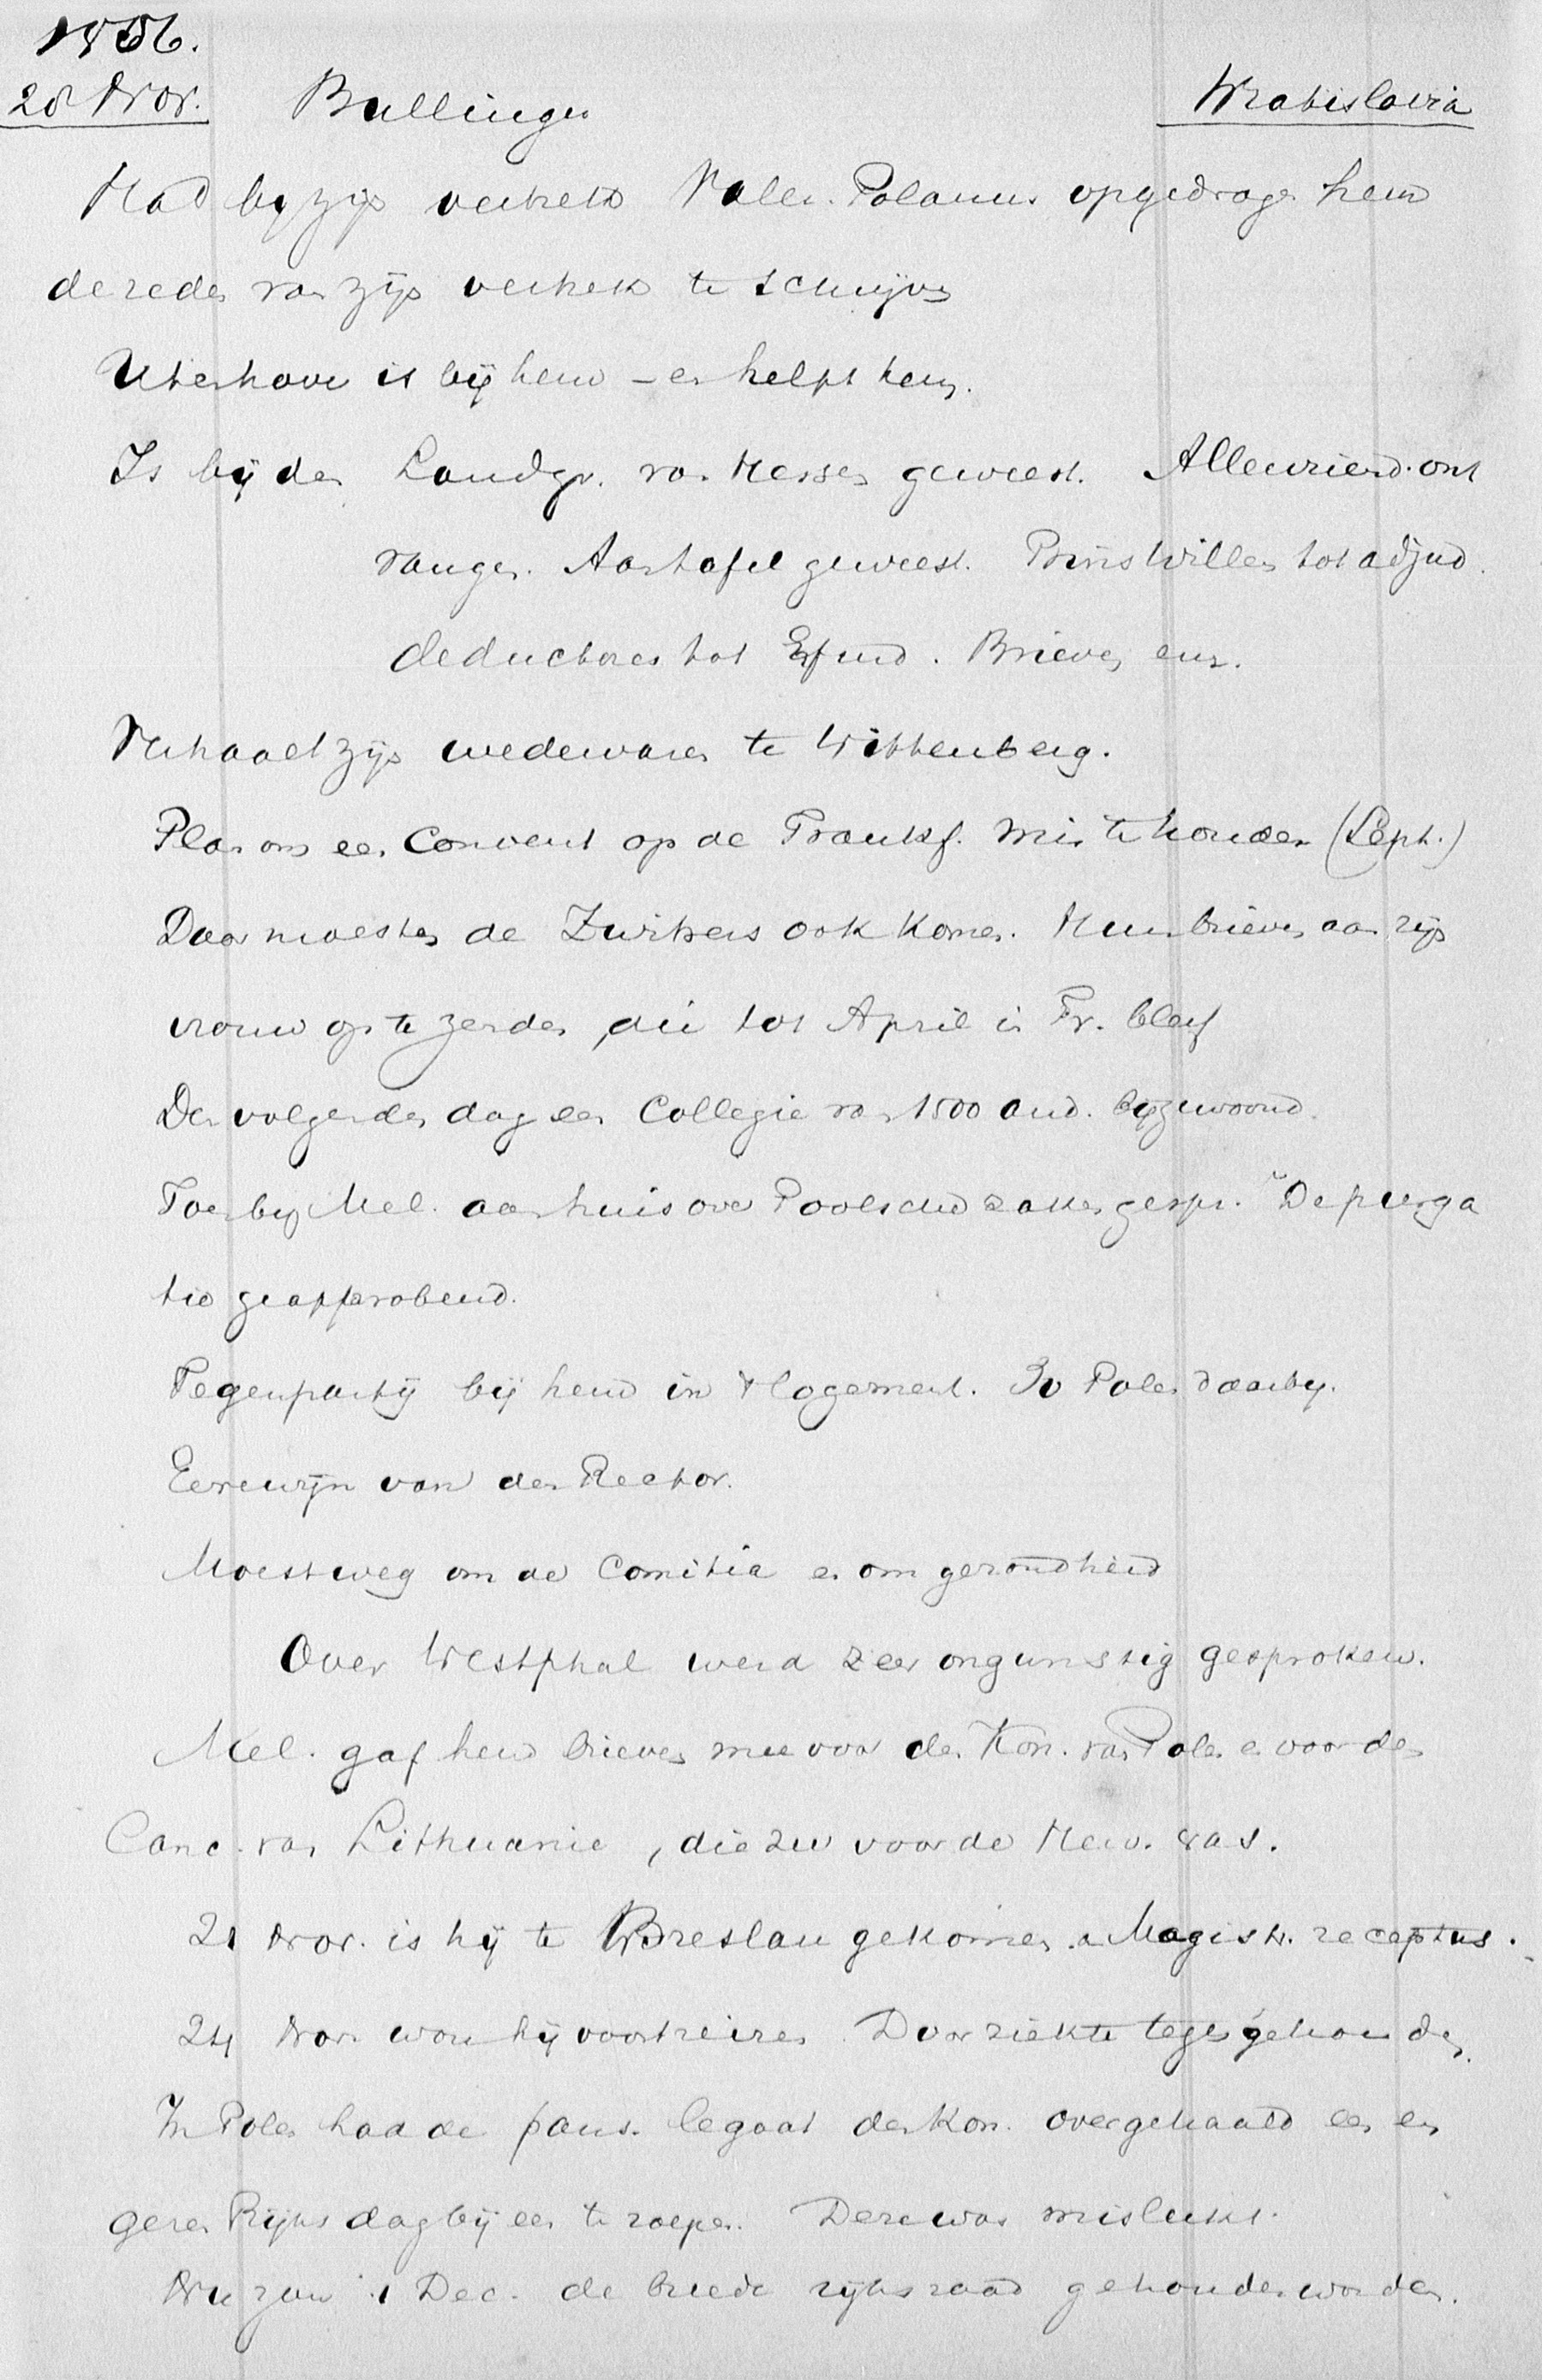 1556.
28 Nov. Bullinger Wratislavia
Had bij zijn vertrek Valer. Polanus opgedragen hem
de reden van zijn vertrek te schrijven
Utenhove is bij hem – en helpt hem.
Is bij den Landgr. van Hessen geweest. Allervriend. ont
vangen. Aan tafel geweest. Prins Willem tot adjud.
deductores tot Erfurd. Brieven enz.
Verhaalt zijn wedervaren te Wittenberg.
Plan om een Convent op de Frankf. mis te houden (Sept.)
Daar moesten de Zwitsers ook komen. Hun brieven aan zijn
vrouw op te zenden, die tot April in Fr. bleef
Den volgenden dag een Collegie van 1500 aud. bijgewoond.
Toen bij Mel. aan huis over Poolsche zaken gespr. De purga
tio geapprobeerd.
Tegenpartij bij hem in 't logement. 30 Polen daarbij.
Eerewijn van den Rector.
Moest weg om de Comitia en om gezondheid
Over Westphal werd zeer ongunstig gesproken.
Mel. gaf hem brieven mee voor den Kon. van Polen en voor den
Canc. van Lithuanie, die zeer voor de Herv. was.
21 Nov. is hij te Breslau gekomen. a Magistr. receptus.
24 Nov. wou hij voortreizen. Door ziekte tegengehouden.
In Polen had de paus. legaat den Kon. overgehaald een en
geren Rijksdag bijeen te roepen. Deze was mislukt.
Nu zou 1 Dec. de breede rijksraad gehouden worden.